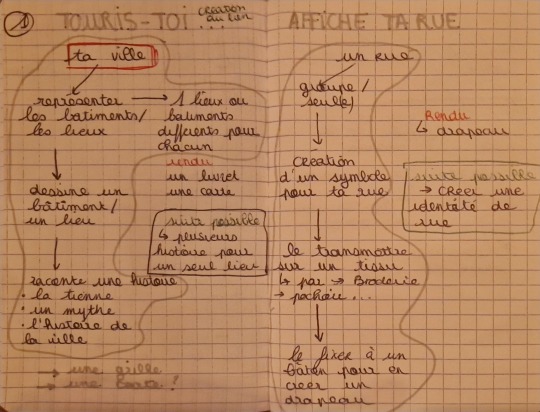 1
TOURIS-TOI ... création du lien
ta ville
représenter → 1 lieux ou
les batiments/ batiments
les lieux différents pour
chacun
rendu
un livret
une carte
dessine un
bâtiment/
un lieu
suite possible
↳ plusieurs
histoire pour
un seul lieu
raconte une histoire
• la tienne
• un mythe
• l'histoire de
la ville
→ une grille
→ une carte ?
AFFICHE TA RUE
un rue
groupe/
seul(e)
Rendu
↳ drapeau
création
d'un symbole
pour ta rue
suite possible
→ créer une
identité de
rue
le transmattre
sur un tissu
↳ par → Broderie
→ pochoir...
le fixer à un
bâton pour en
créer un
drapeau